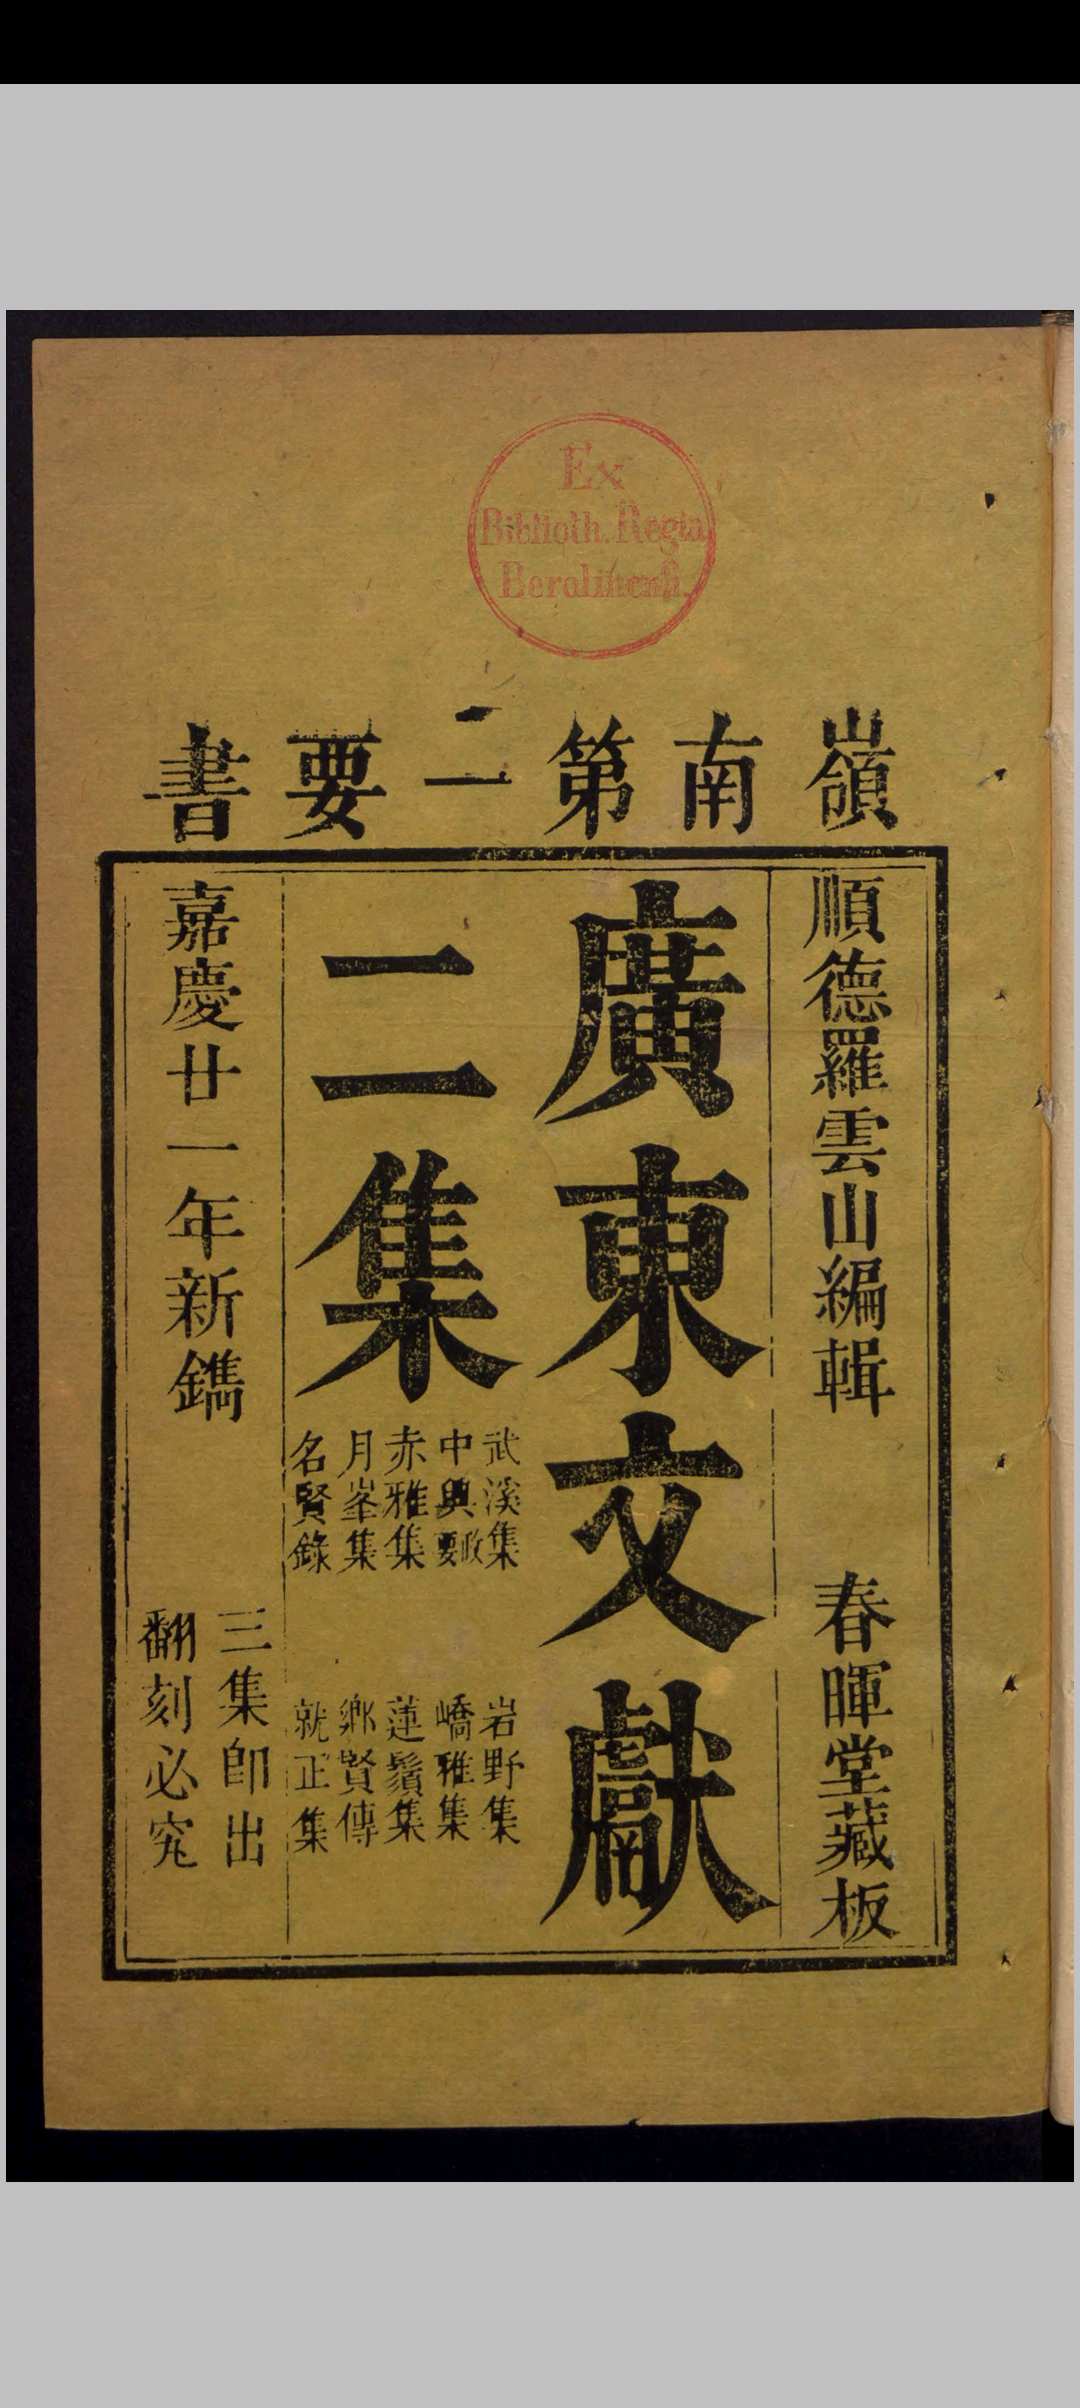 Ex
Biblioth. Regia
Berolinensi.
嶺南第二要書
順德羅雲山編輯
春暉堂藏板
廣東文獻
二集
武溪集
中興要政
赤雅集
月峯集
名賢錄
岩野集
嶠雅集
蓮鬚集
鄉賢傳
就正集
嘉慶廿一年新鐫
三集即出
翻刻必究